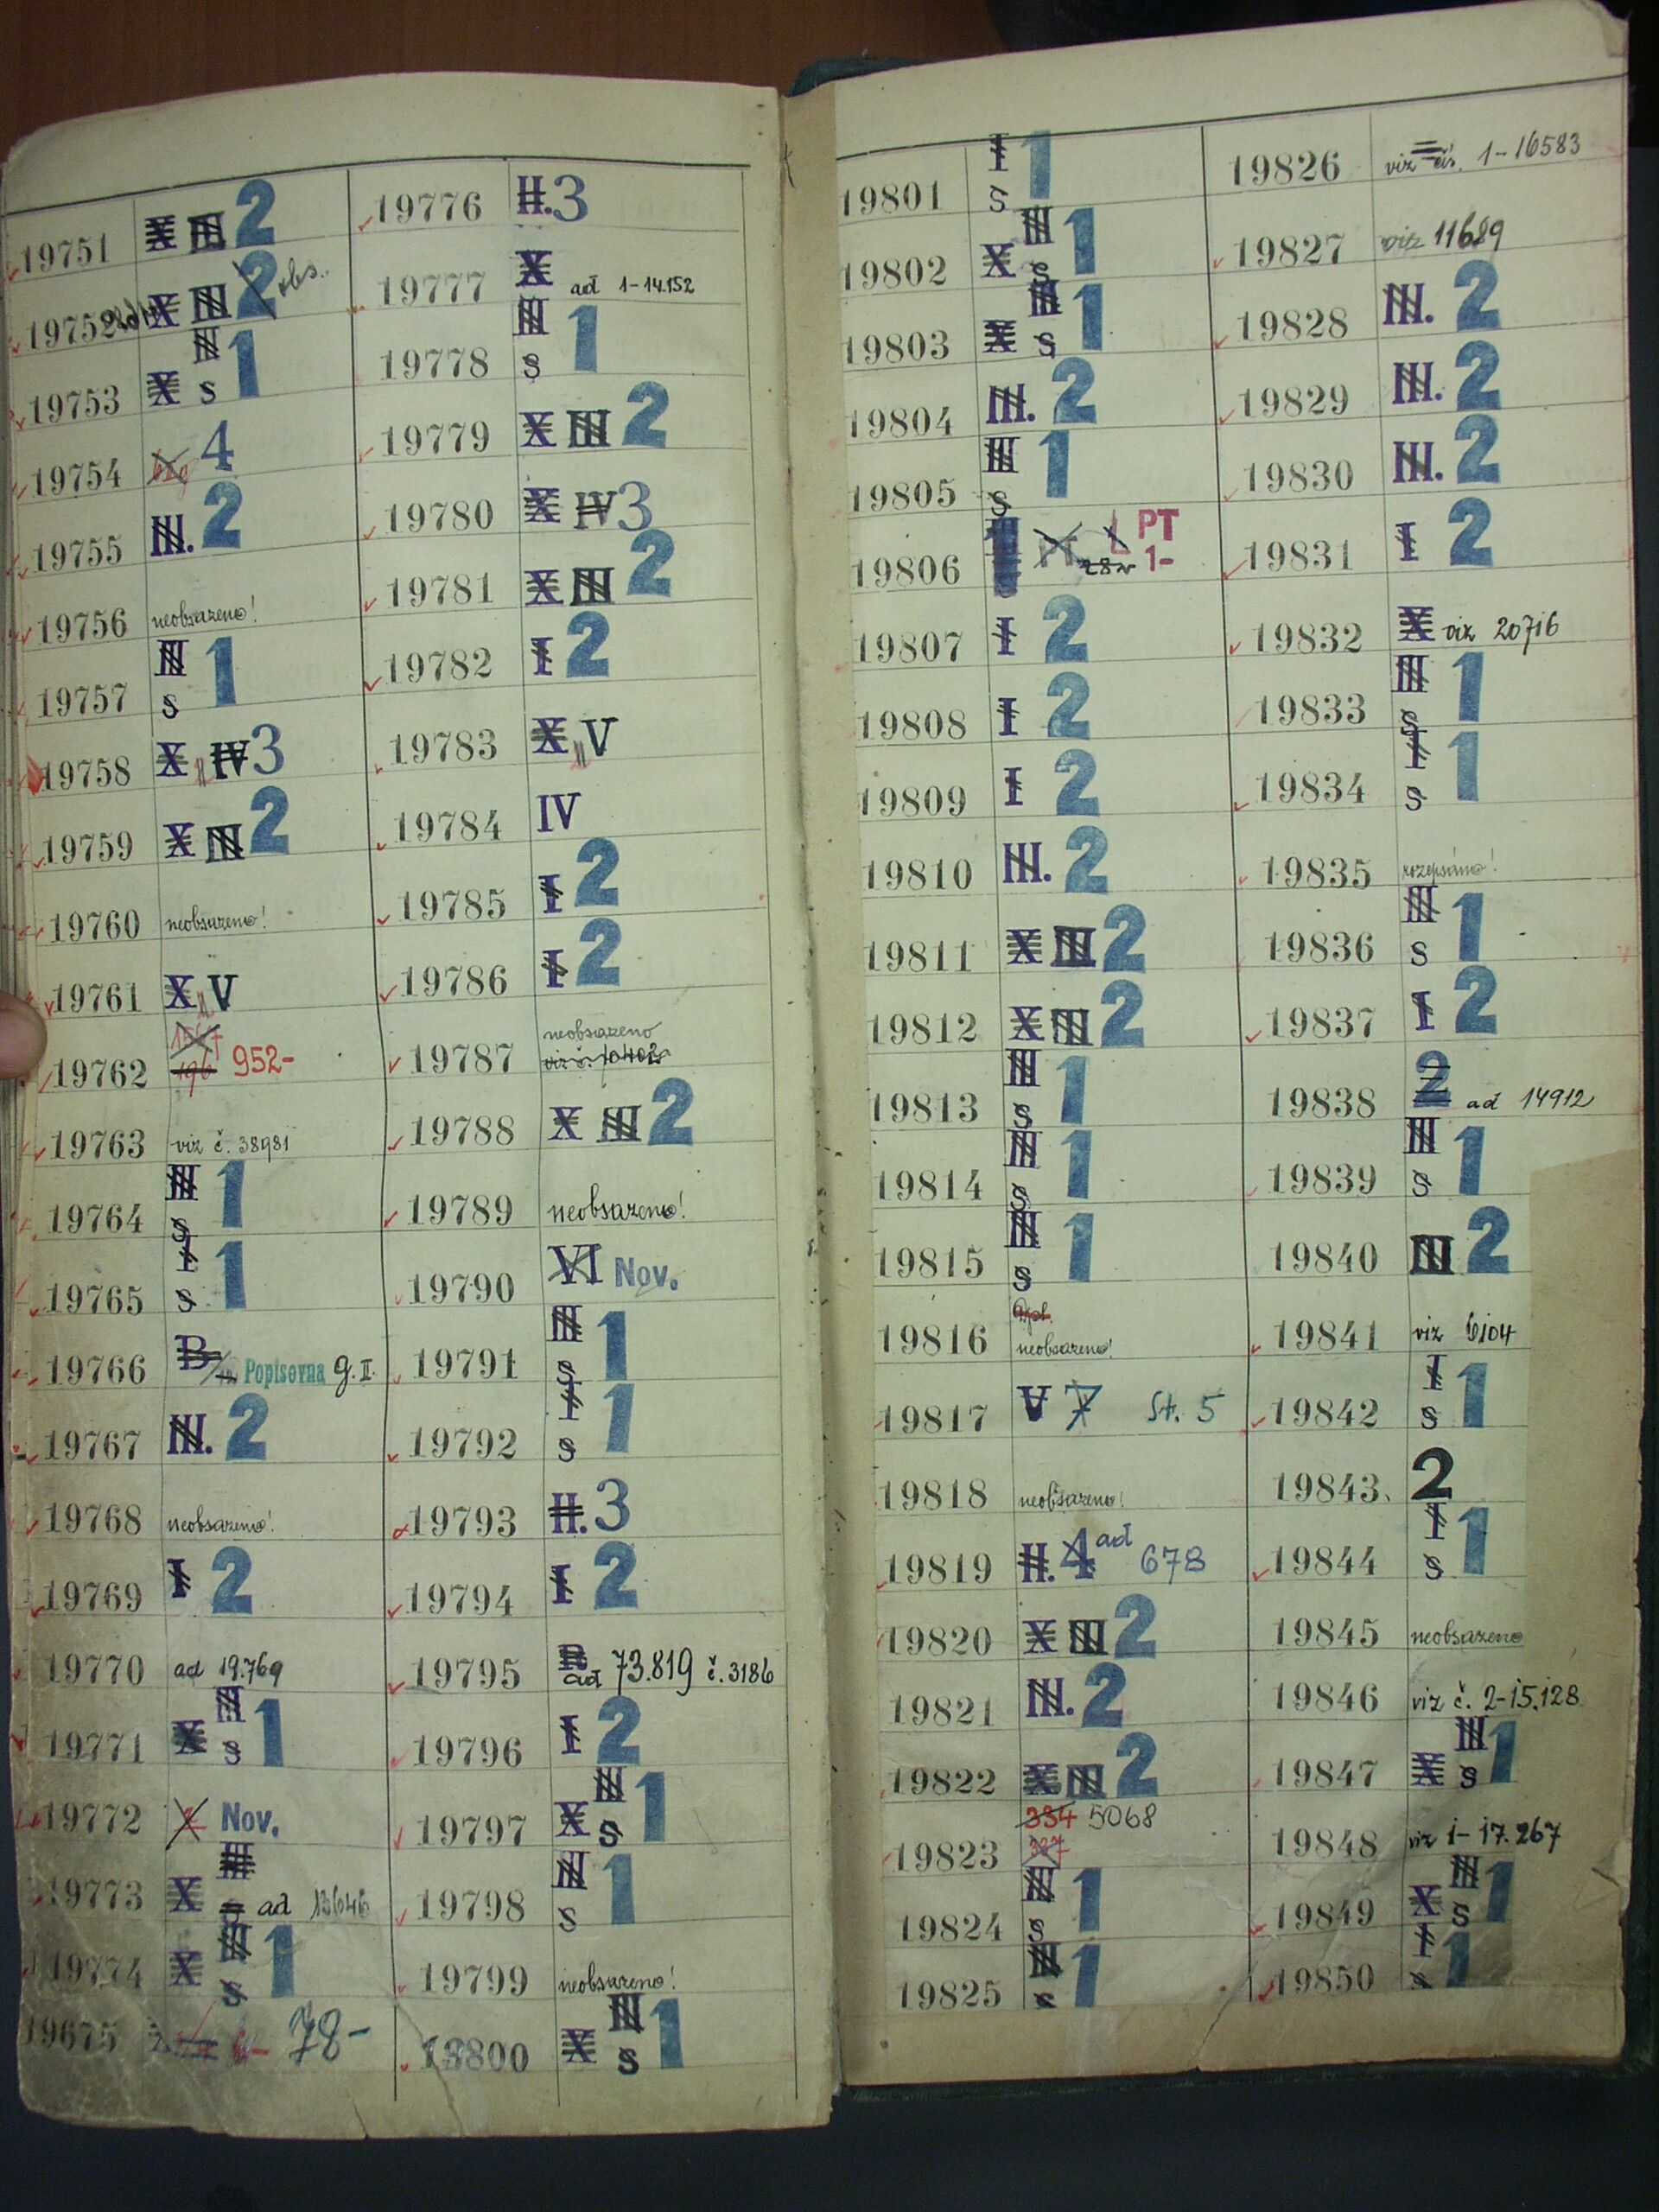 19751 X III 2
19752 X III 2 obs.
19753 X III s 1
19754 4
19755 III. 2
19756 neobsazeno!
19757 III s 1
19758 X IV 3
19759 X III 2
19760 neobsazeno!
19761 X V
19762 952-
19763 viz č. 38981
19764 III s 1
19765 I s 1
19766 B Popisovna g. II.
19767 III. 2
19768 neobsazeno!
19769 I 2
19770 ad 19.769
19771 X III s 1
19772 Nov.
19773 X III s ad 13646
19774 X III s 1
19675 78-
19776 II. 3
19777 X ad 1-14.152
19778 III s 1
19779 X III 2
19780 X IV 3
19781 X III 2
19782 I 2
19783 X V
19784 IV
19785 I 2
19786 I 2
19787 neobsazeno
viz č.
19788 X III 2
19789 neobsazeno!
19790 VI Nov.
19791 III s 1
19792 I s 1
19793 II. 3
19794 I 2
19795 ad 73.819 č. 3186
19796 I 2
19797 X III s 1
19798 III s 1
19799 neobsazeno!
19800 X III s 1
19801 I s 1
19802 X III s 1
19803 X III s 1
19804 III. 2
19805 III s 1
19806 PT PT 1-
19807 I 2
19808 I 2
19809 I 2
19810 III. 2
19811 X III 2
19812 X III 2
19813 III s 1
19814 III s 1
19815 III s 1
19816 neobsazeno!
19817 V 7 St. 5
19818 neobsazeno!
19819 II. 4 ad 678
19820 X III 2
19821 III. 2
19822 X III 2
19823 334 5068
19824 III s 1
19825 III s 1
19826 viz čís. 1-16583
19827 viz 11689
19828 III. 2
19829 III. 2
19830 III. 2
19831 I 2
19832 X viz 20716
19833 III s 1
19834 I s 1
19835 rozepsáno!
19836 III s 1
19837 I 2
19838 2 ad 14912
19839 III s 1
19840 III 2
19841 viz 6104
19842 I s 1
19843 2
19844 I s 1
19845 neobsazeno
19846 viz č. 2-15.128
19847 X III s 1
19848 viz 1-17.267
19849 X III s 1
19850 I s 1